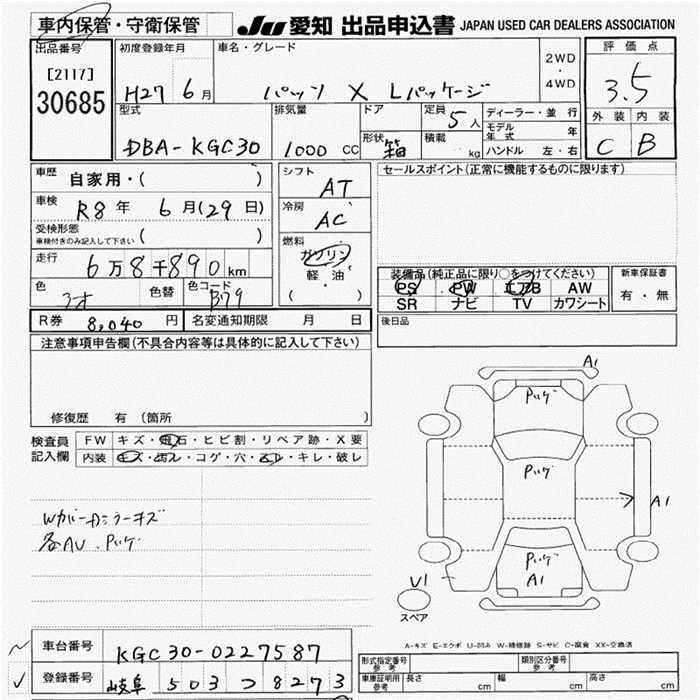 車内保管・守衛保管
JU 愛知 出品申込書 JAPAN USED CAR DEALERS ASSOCIATION
出品番号
[2117]
30685
初度登録年月
H27 6月
車名・グレード
パッソ X Lパッケージ
2WD
・
4WD
評価点
3.5
外装 内装
C B
型式
DBA-KGC30
排気量
1000 CC
ドア
形状
箱
定員
5人
積載
kg
ディーラー・並行
モデル年式 年
ハンドル 左・右
車歴
自家用・( )
車検
R8年 6月(29日)
受検形態
車検付きのみ記入して下さい ( )
走行
6万8千890km
色
色替
色コード
B79
シフト
AT
冷房
AC
燃料
ガソリン
軽油
( ・ )
セールスポイント(正常に機能するものに限ります)
装備品(純正品に限り○をつけてください)
PS PW エアB AW
SR ナビ TV カワシート
新車保証書
有・無
R券 8,040円
名変通知期限 月 日
後日品
注意事項申告欄(不具合内容等は具体的に記入して下さい)
修復歴 有 (箇所 )
検査員
記入欄
FW キズ・飛石・ヒビ割・リペア跡・X要
内装 キズ・汚れ・コゲ・穴・スレ・キレ・破レ
Wカバーカラーキズ
各AU・Pハゲ
A1
Pハゲ
Pハゲ
A1
Pハゲ
A1
U1
スペア
A-キズ E-エクボ U-凹み W-補修跡 S-サビ C-腐食 XX-交換済
車台番号
KGC30-0227587
登録番号
岐阜 503 つ 8273
型式指定番号
参考
類別区分番号
参考
車庫証明用
参考
長さ cm 幅 cm 高さ cm